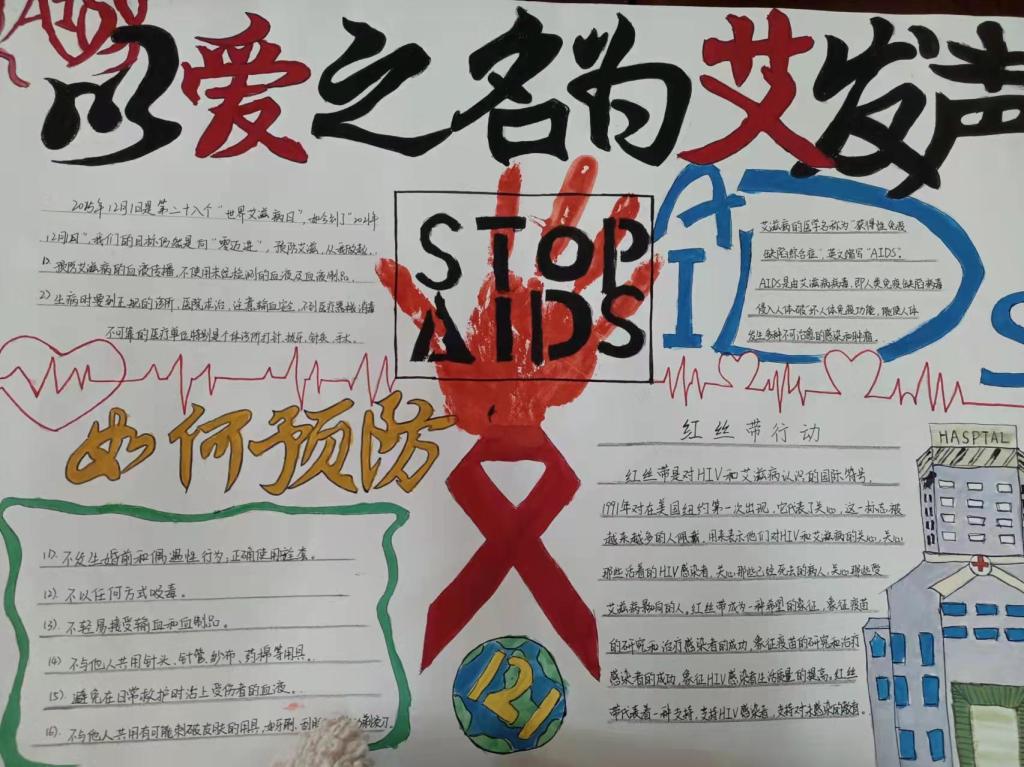 AIDS
以爱之名为艾发声
2015年12月1日是第二十八个"世界艾滋病日",如今到了"2021年
12月1日",我们的目标仍然是向"零迈进",预防艾滋,从我做起。
1) 预防艾滋病的血液传播,不使用未经检测的血液及血液制品。
2) 生病时要到正规的诊所、医院求治,注意输血安全,不到医疗器械消毒
不可靠的医疗单位特别是个体诊所打针、拔牙、针灸、手术。
STOP
AIDS
AIDS
艾滋病的医学名称为"获得性免疫
缺陷综合症",英文缩写"AIDS"。
AIDS是由艾滋病病毒,即人类免疫缺陷病毒
侵入人体破坏人体免疫功能,使人体
发生多种不可治愈的感染和肿瘤。
如何预防
(1). 不发生婚前和偶遇性行为,正确使用
(2). 不以任何方式吸毒。
(3). 不轻易接受输血和血制品。
(4). 不与他人共用针头、针管、纱布、药棉等用具。
(5). 避免在日常救护时沾上受伤者的血液。
(6). 不与他人共用有可能刺破皮肤的用具,如牙刷、刮
121
红丝带行动
红丝带是对HIV和艾滋病认识的国际符号,
1991年对在美国纽约第一次出现,它代表了关心,这一标志被
越来越多的人佩戴,用来表示他们对HIV和艾滋病的关心,关心
那些活着的HIV感染者,关心那些已经死去的病人,关心那些受
艾滋病影响的人,红丝带成为一种希望的象征,象征疫苗
的研究和治疗感染者的成功,象征疫苗的研究和治疗
感染者的成功,象征HIV感染者生活质量的提高,红丝
带代表着一种支持,支持HIV感染者,支持对未感染的教育。
HASPTAL